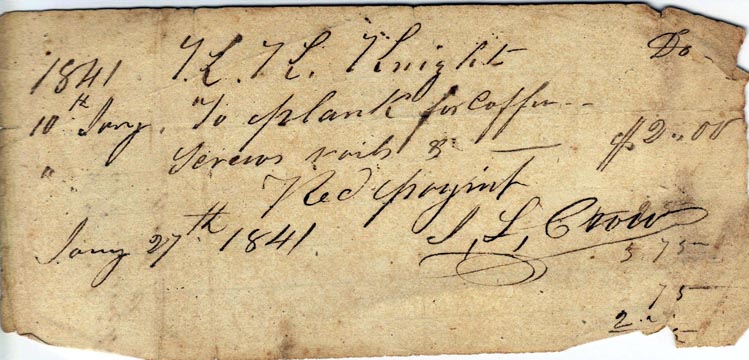 1841 T. L. T. L. Knight Do
10th Jany. To plank for Coffin --
" Screws nails & — $2.00
Recd payint
Jany 27th 1841 I, L, Crow
5 75
75
2